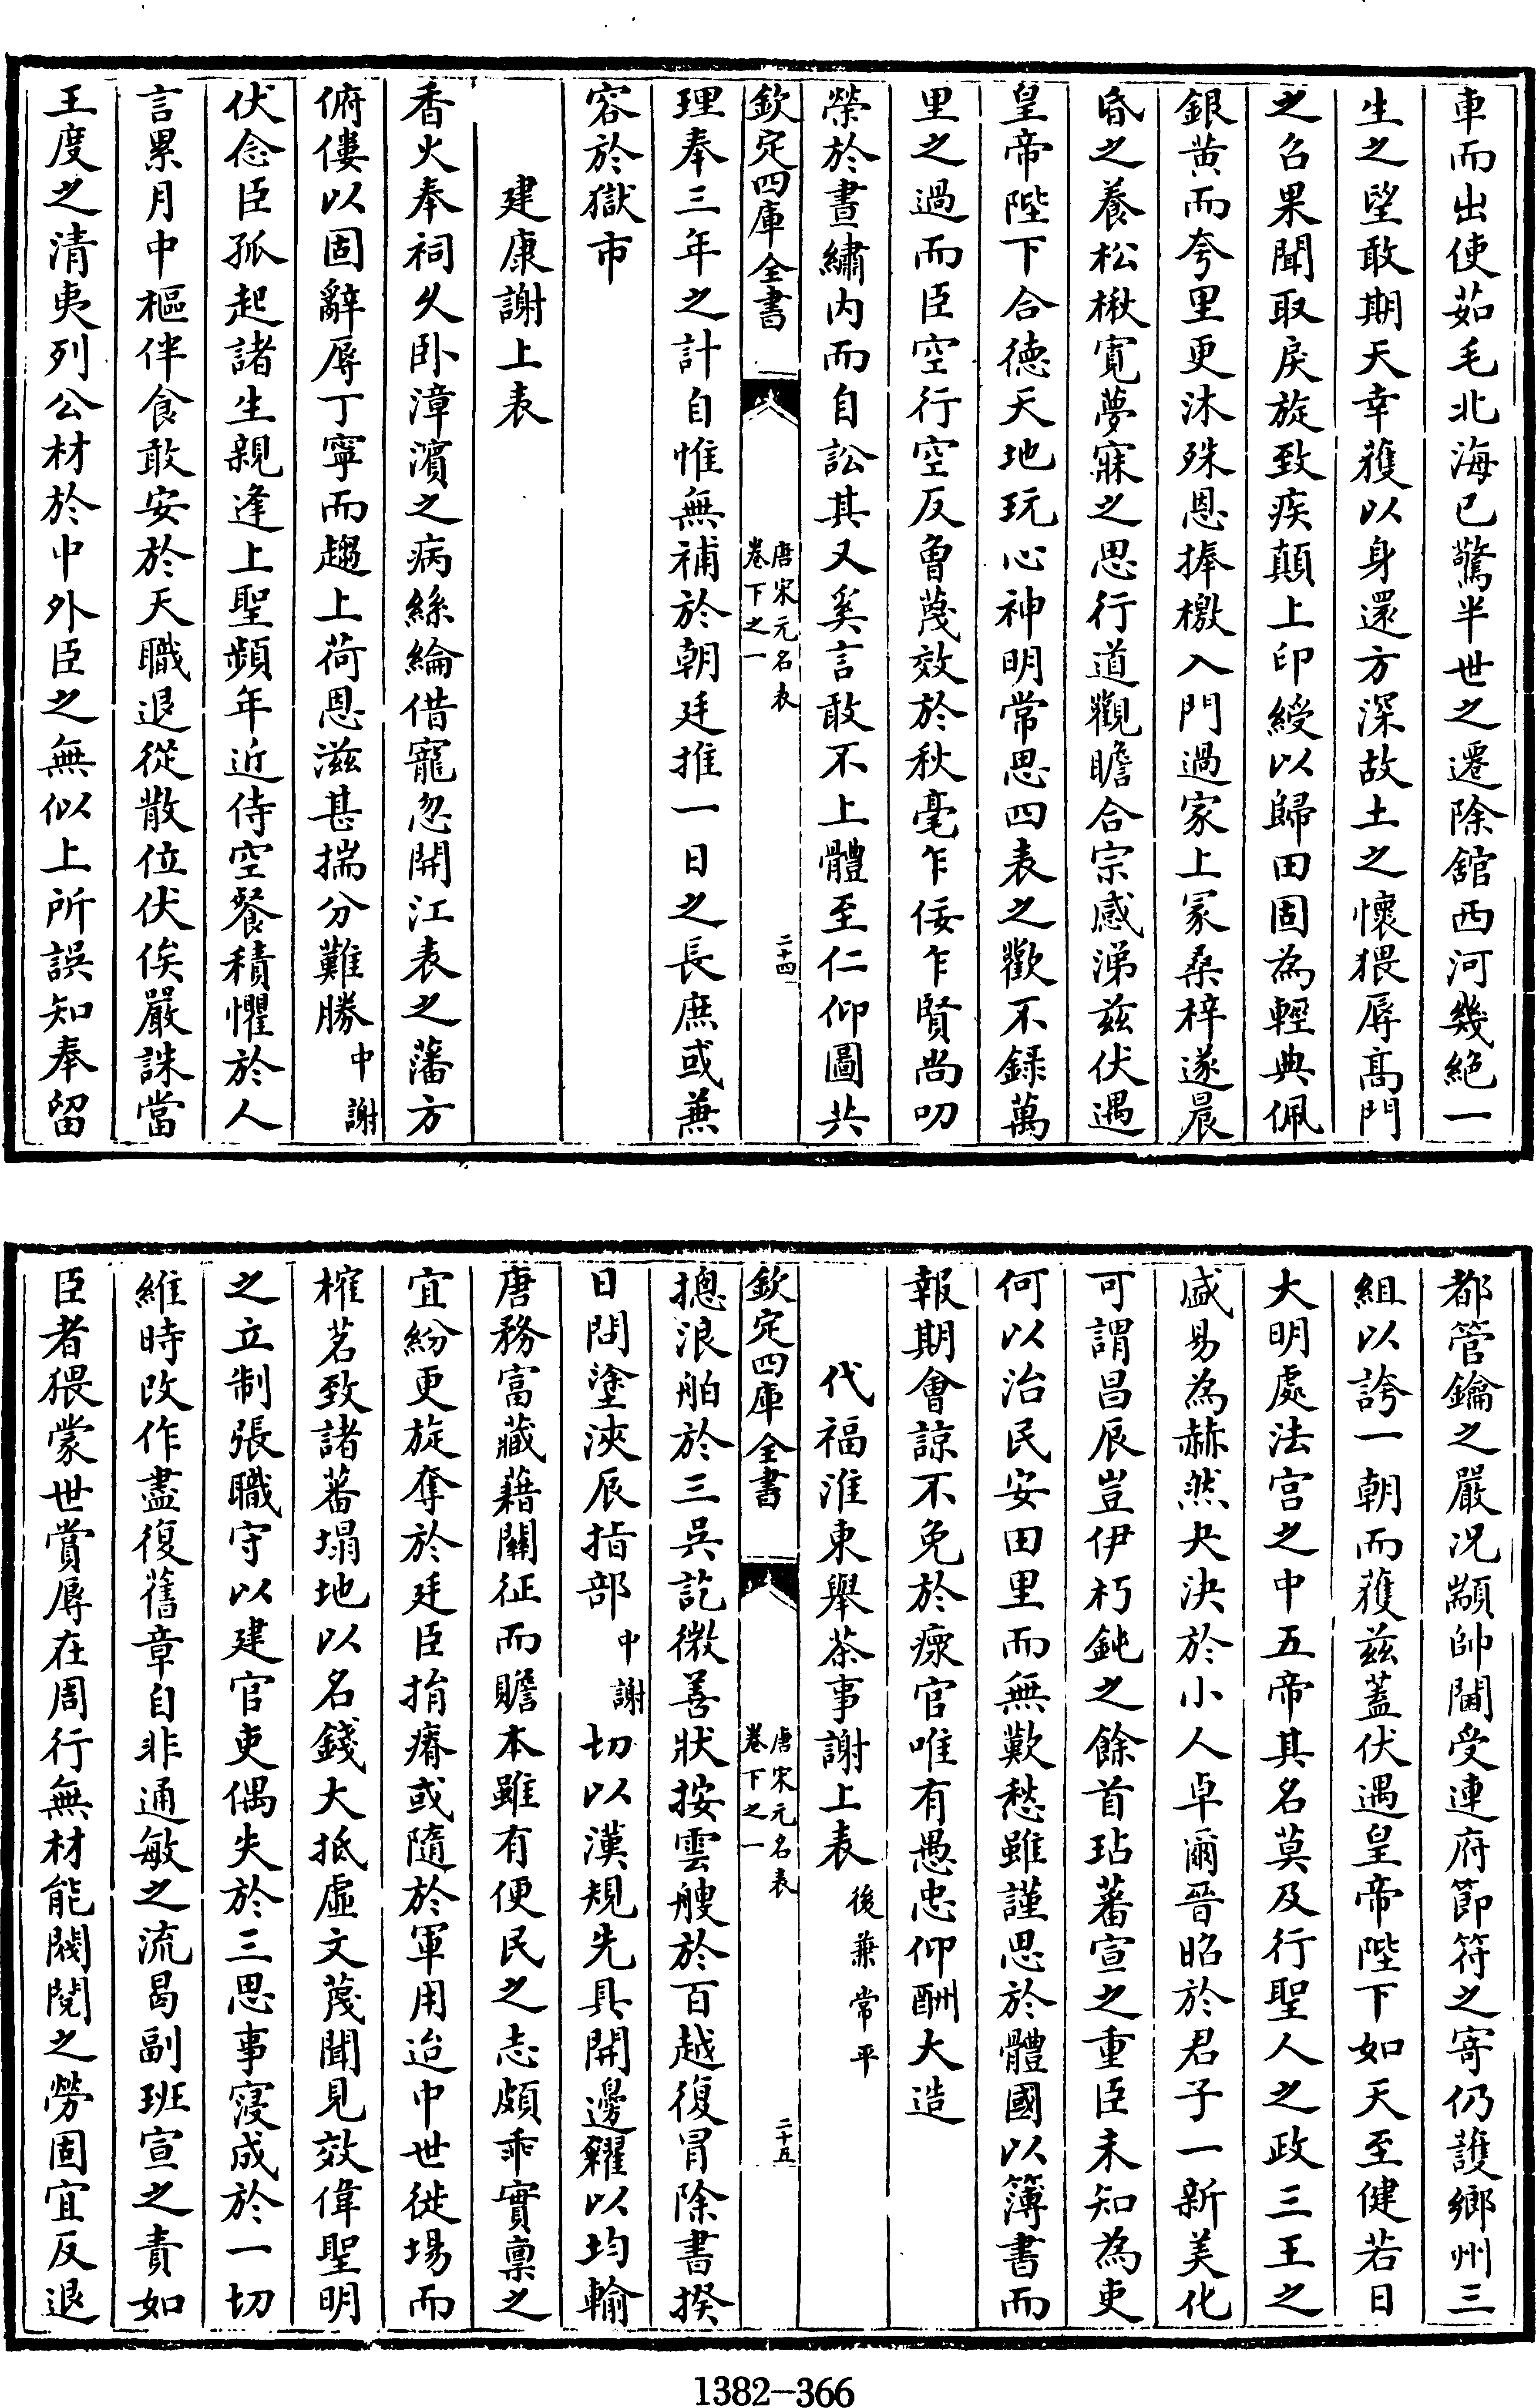 車而出使茹毛北海已驚半世之遷除舘西河幾絶一
生之望敢期天幸獲以身還方深故土之懷猥辱髙門
之召果聞取戾旋致疾顛上印綬以歸田固為輕典佩
銀黄而夸里更沐殊恩捧檄入門過家上冡桑梓遂晨
昏之養松楸寛夢寐之思行道觀瞻合宗感涕兹伏遇
皇帝陛下合徳天地玩心神明常思四表之歡不録萬
里之過而臣空行空反魯蔑效於秋毫乍佞乍賢尚叨
榮於晝繡内而自訟其又奚言敢不上體至仁仰圖共
欽定四庫全書
唐宋元名表
卷下之一
二十四
理奉三年之計自惟無補於朝廷推一日之長庶或兼
容於獄市
建康謝上表
香火奉祠久卧漳濱之病絲綸借寵忽開江表之藩方
俯僂以固辭辱丁寧而趨上荷恩滋甚揣分難勝中謝
伏念臣孤起諸生親逢上聖頻年近侍空餐積懼於人
言累月中樞伴食敢安於天職退從散位伏俟嚴誅當
王度之清夷列公材於中外臣之無似上所誤知奉留
都管鑰之嚴况顓帥閫受連府節符之寄仍護鄉州三
組以誇一朝而獲兹蓋伏遇皇帝陛下如天至健若日
大明處法宫之中五帝其名莫及行聖人之政三王之
盛易為赫然夬決於小人卓爾晉昭於君子一新美化
可謂昌辰豈伊朽鈍之餘首玷蕃宣之重臣未知為吏
何以治民安田里而無歎愁雖謹思於體國以簿書而
報期會諒不免於瘝官唯有愚忠仰酬大造
代福淮東舉茶事謝上表後兼常平
欽定四庫全書
唐宋元名表
卷下之一
二十五
摠浪舶於三吳訖微善狀按雲艘於百越復冐除書揆
日問塗浹辰指部中謝切以漢規先具開邊糴以均輸
唐務富藏藉關征而贍本雖有便民之志頗乖實禀之
宜紛更旋奪於廷臣捐瘠或隨於軍用迨中世徙場而
榷茗致諸蕃塌地以名錢大抵虚文蔑聞見效偉聖明
之立制張職守以建官吏偶失於三思事寖成於一切
維時改作盡復舊章自非通敏之流曷副班宣之責如
臣者猥蒙世賞辱在周行無材能閥閲之勞固宜反退
1382-366